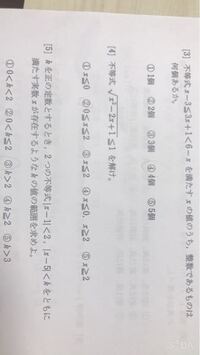 [3] 不等式 x-3≦3x+1<6-x を満たす x の値のうち,整数であるものは
何個あるか。
① 1個 ② 2個 ③ 3個 ④ 4個 ⑤ 5個
[4] 不等式 √x²-2x+1≦1 を解け。
① x≦0 ② 0≦x≦2 ③ x≦2 ④ x≦0, x≧2 ⑤ x≧2
[5] k を正の定数とするとき, 2つの不等式 |x-1|<2, |x-5|<k をともに
満たす実数 x が存在するような k の値の範囲を求めよ。
① 0<k<2 ② 0<k≦2 ③ k>2 ④ k≧2 ⑤ k>3